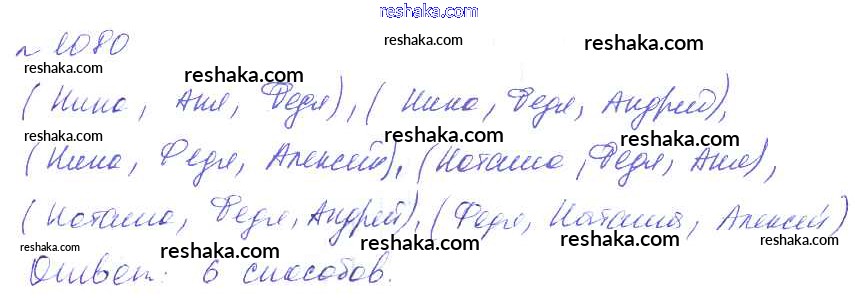 reshaka.com
n 1080 reshaka.com reshaka.com
reshaka.com reshaka.com reshaka.com
(Нина, Аня, Федя), (Нина, Федя, Андрей),
reshaka.com reshaka.com reshaka.com
(Нина, Федя, Алексей), (Наташа, Федя, Аня),
reshaka.com reshaka.com reshaka.com
(Наташа, Федя, Андрей), (Федя, Наташа, Алексей)
reshaka.com reshaka.com reshaka.com reshaka.com
Ответ: 6 способов.